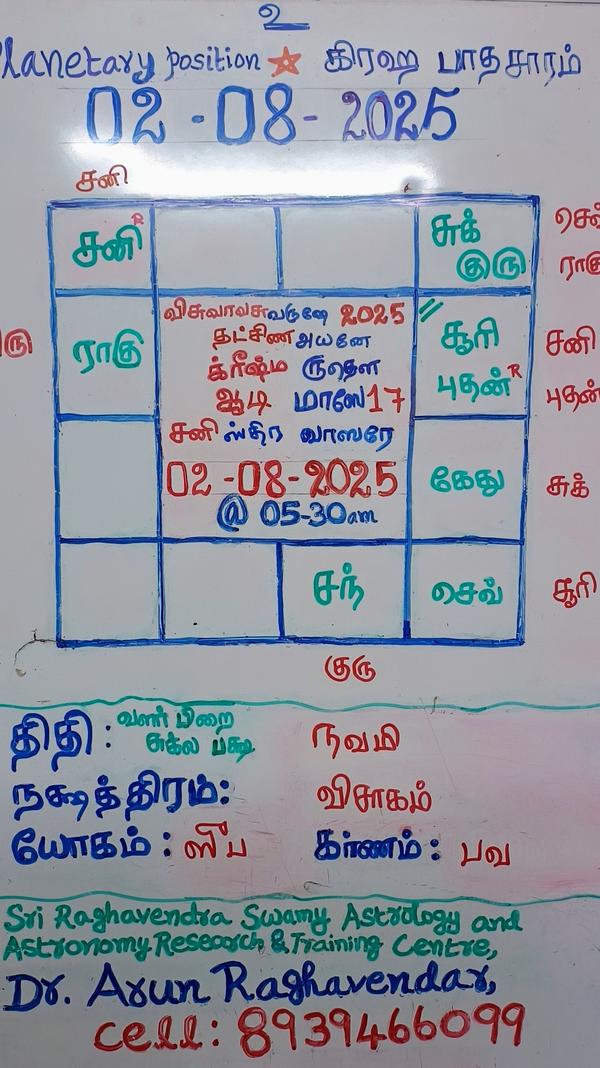 உ
Planetary position கிரஹ பாதசாரம்
02-08-2025
சனி
சனி R
சுக்
குரு
ராகு
விசுவாவசுவருஷே 2025
தட்சிண அயனே
க்ரீஷ்ம ருதௌ
ஆடி மாஸே 17
சனி ஸ்திர வாஸரே
02-08-2025
@ 05-30am
சூரி
புதன் R
ராகு
சனி
புதன்
கேது
சுக்
சந்
செவ்
சூரி
குரு
திதி : வளர் பிறை
சுக்ல பக்ஷ
நவமி
நக்ஷத்திரம்: விசாகம்
யோகம் : கர்ணம் : பவ
Sri Raghavendra Swamy Astrology and
Astronomy Research & Training Centre,
Dr. Arun Raghavendar,
cell: 8939466099